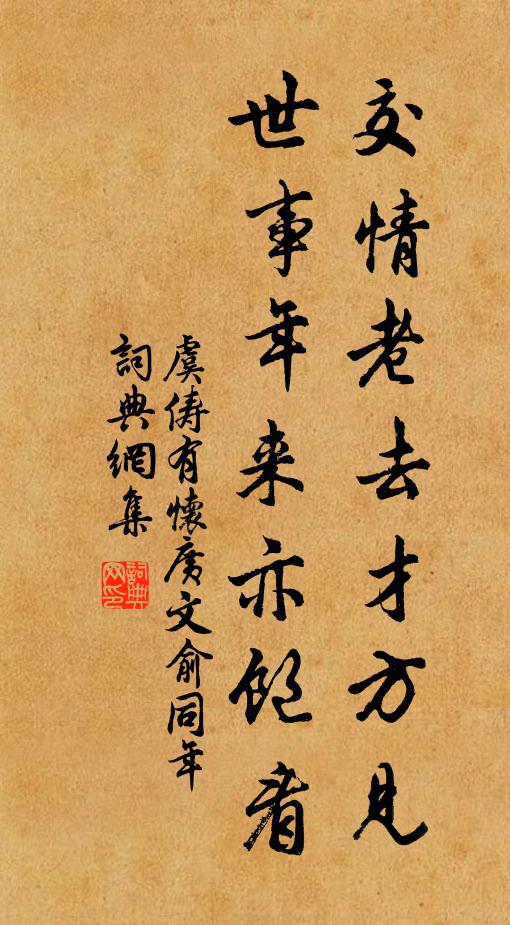 交情老去才方見
世事年来亦飽看
虞儔有懷廣文俞同年
詞典網集
詞典網印